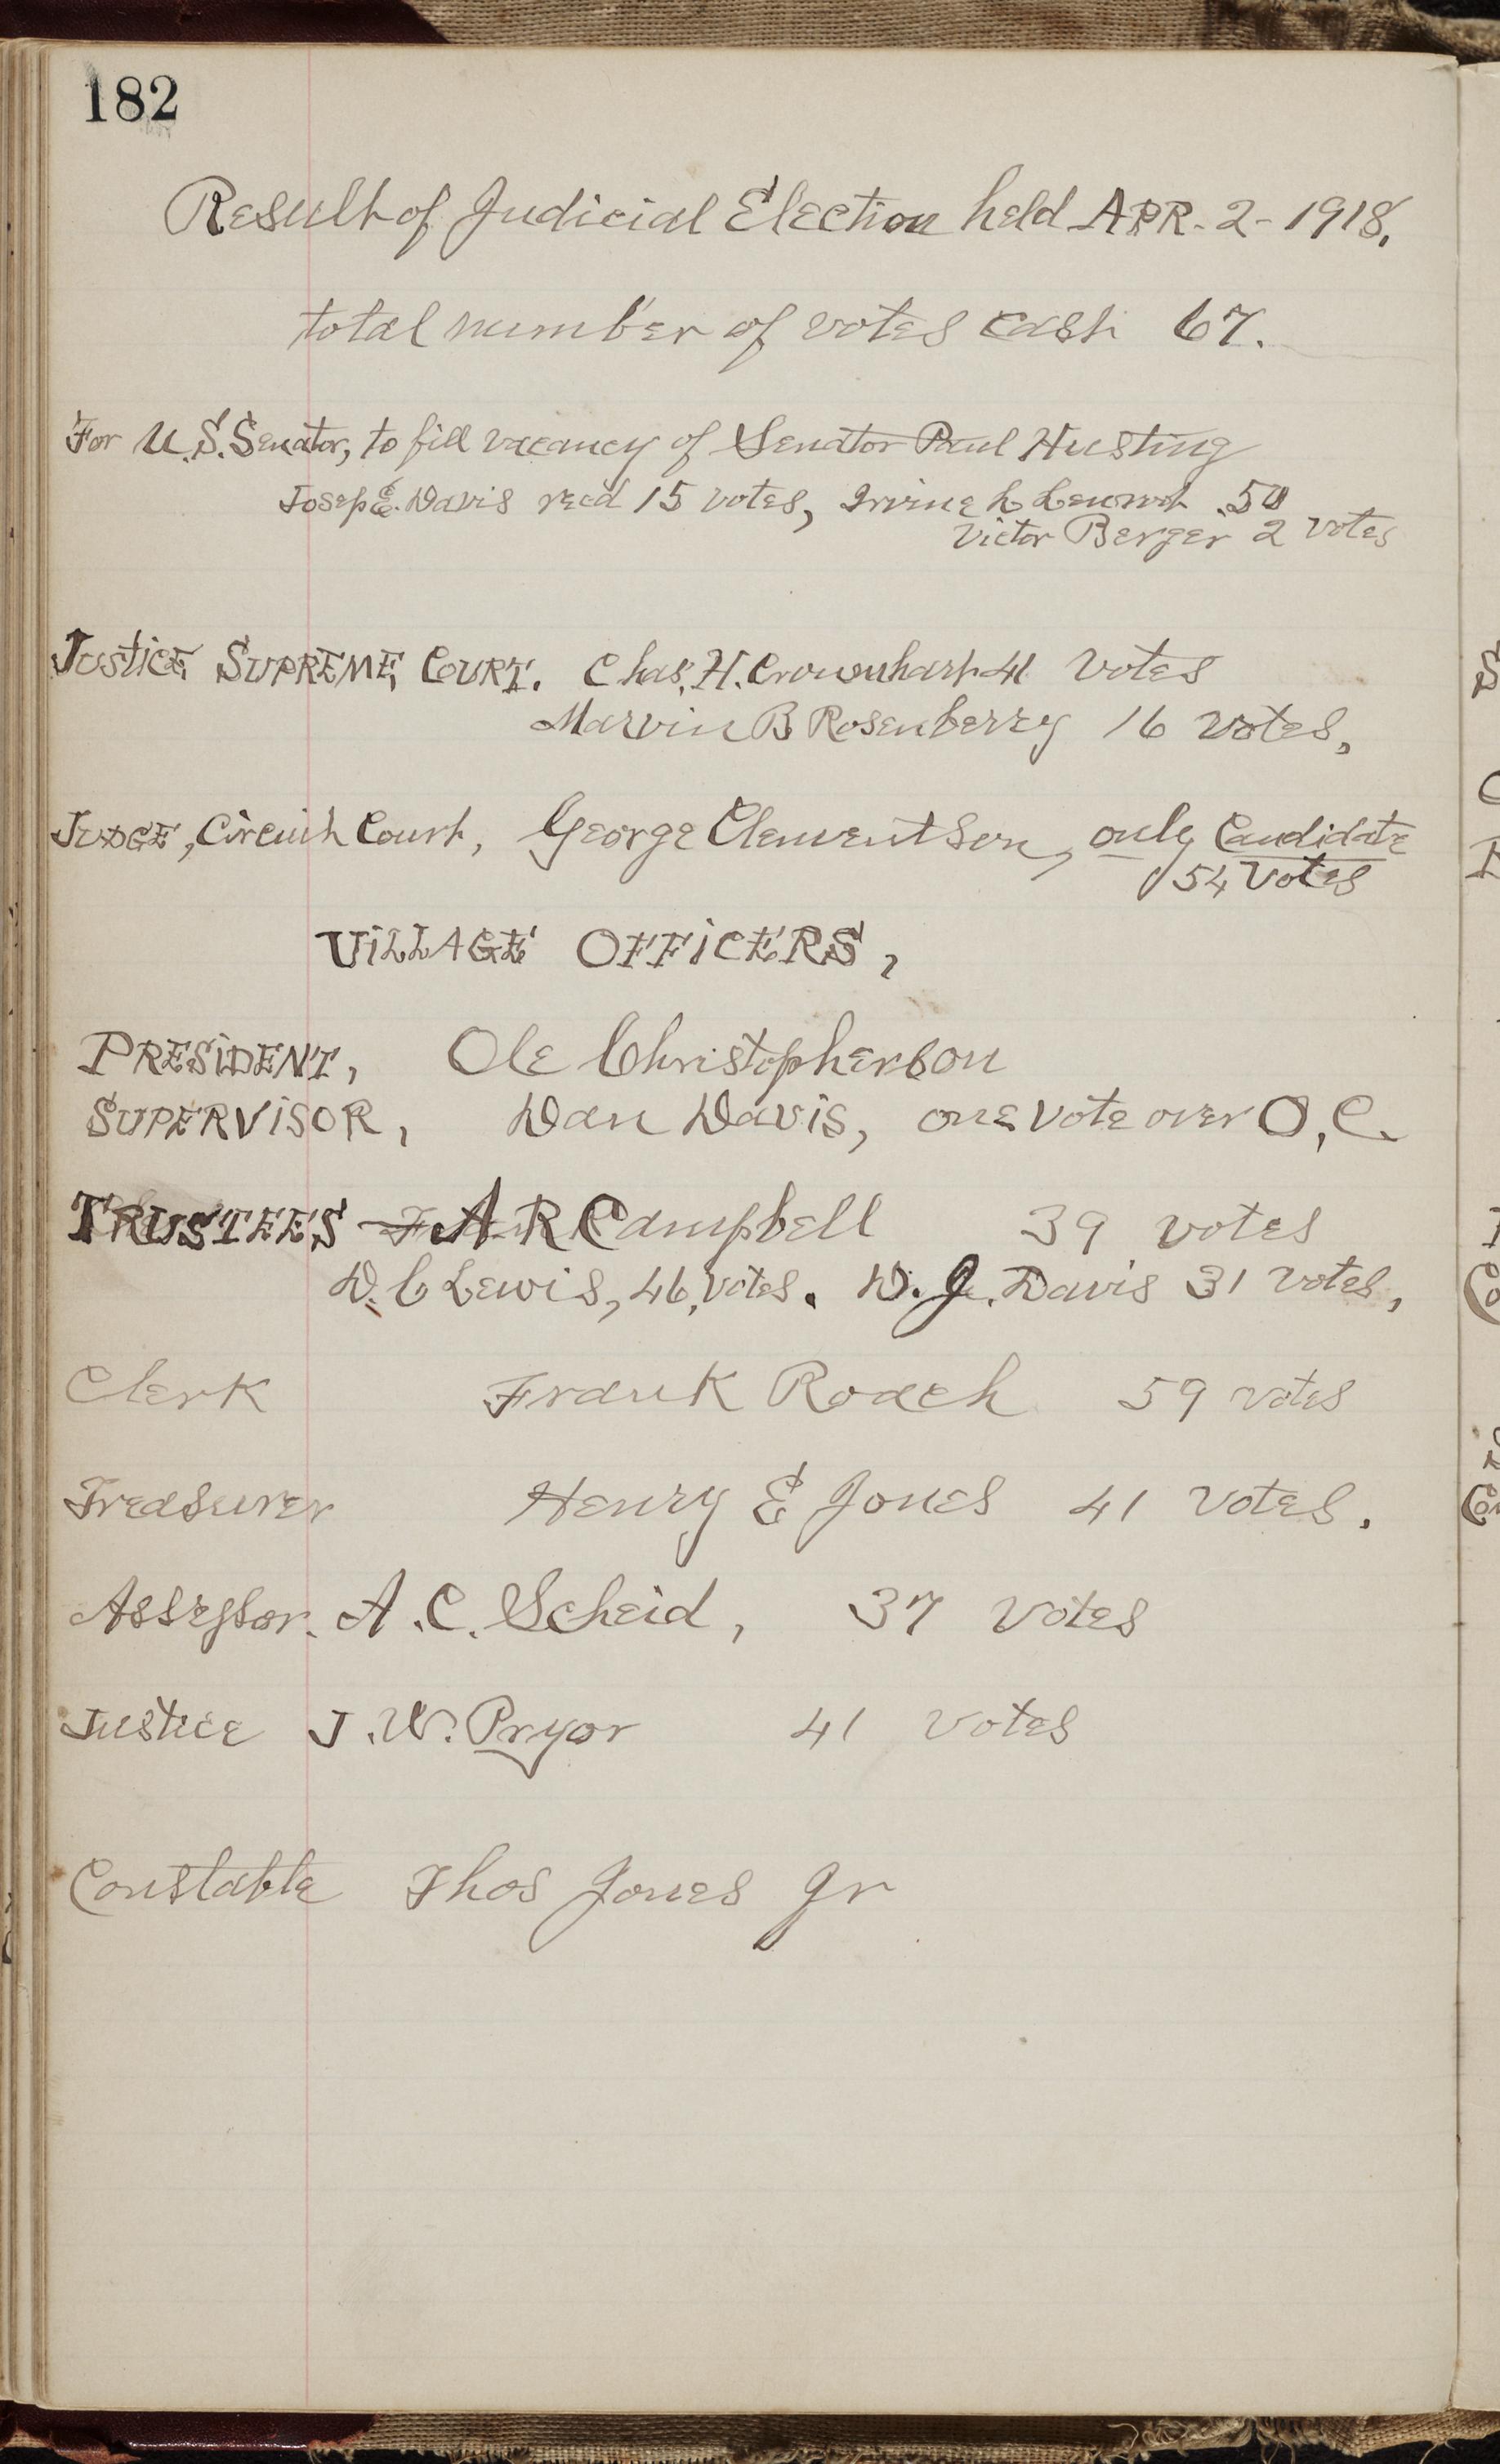 182
Result of Judicial Election held APR. 2 - 1918.
total number of votes cast 67.
For U.S. Senator, to fill vacancy of Senator Paul Husting
Josep E. Davis recd 15 votes, Irvine L Lenroot .50
Victor Berger 2 votes
JUSTICE SUPREME COURT. Chas. H. Crownhart 41 votes
Marvin B Rosenberry 16 votes,
JUDGE, Circuit Court, George Clementson, only Candidate
54 votes
VILLAGE OFFICERS,
PRESIDENT, Ole Christopherson
SUPERVISOR, Dan Davis, one vote over O. C.
TRUSTEES A R Campbell 39 votes
D. C Lewis, 46, votes. D. J. Davis 31 votes,
Clerk Frank Roach 59 votes
Treasurer Henry E Jones 41 votes.
Assessor. A. C. Scheid, 37 votes
Justice J. W. Pryor 41 votes
Constable Thos Jones Jr